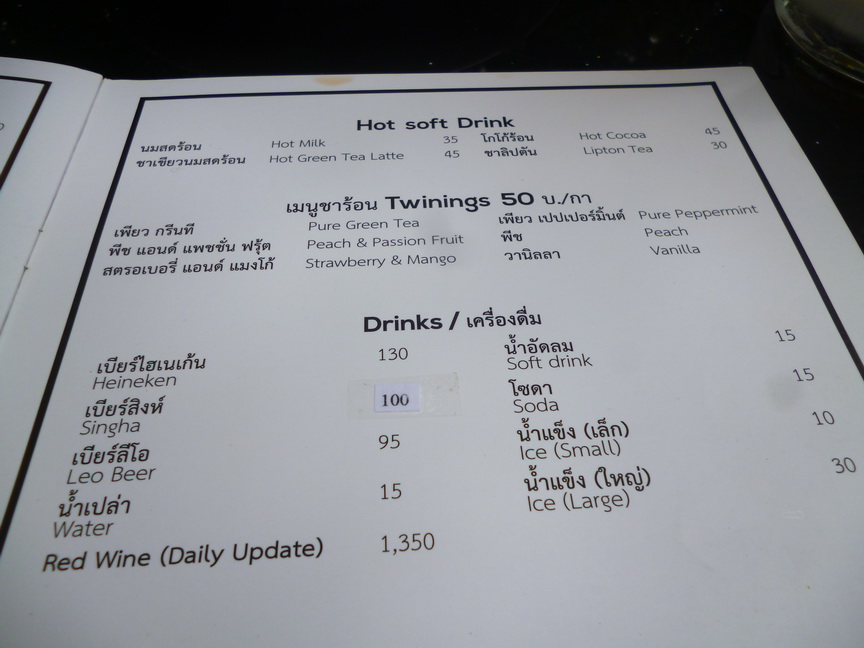 Hot soft Drink
นมสดร้อน Hot Milk 35 โกโก้ร้อน Hot Cocoa 45
ชาเขียวนมสดร้อน Hot Green Tea Latte 45 ชาลิปตัน Lipton Tea 30
เมนูชาร้อน Twinings 50 บ./กา
เพียว กรีนที Pure Green Tea เพียว เปปเปอร์มิ้นต์ Pure Peppermint
พีช แอนด์ แพชชั่น ฟรุ้ต Peach & Passion Fruit พีช Peach
สตรอเบอรี่ แอนด์ แมงโก้ Strawberry & Mango วานิลลา Vanilla
Drinks / เครื่องดื่ม
เบียร์ไฮเนเก้น 130
Heineken
เบียร์สิงห์ 100
Singha
เบียร์ลีโอ 95
Leo Beer
น้ำเปล่า 15
Water
Red Wine (Daily Update) 1,350
น้ำอัดลม 15
Soft drink
โซดา 15
Soda
น้ำแข็ง (เล็ก) 10
Ice (Small)
น้ำแข็ง (ใหญ่) 30
Ice (Large)